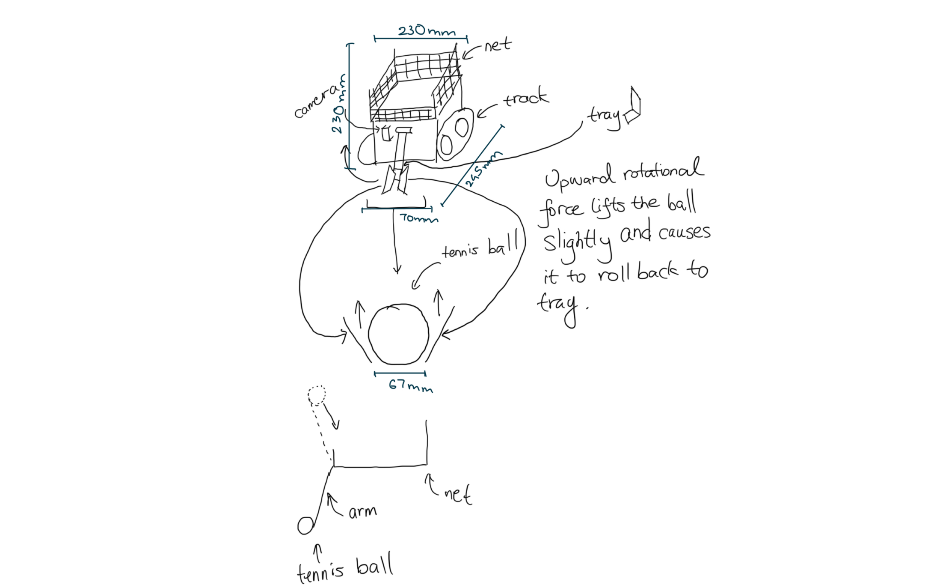 230mm
net
camera
230mm
track
tray
245mm
70mm
Upward rotational
force lifts the ball
slightly and causes
it to roll back to
tray.
tennis ball
67mm
arm
net
tennis ball